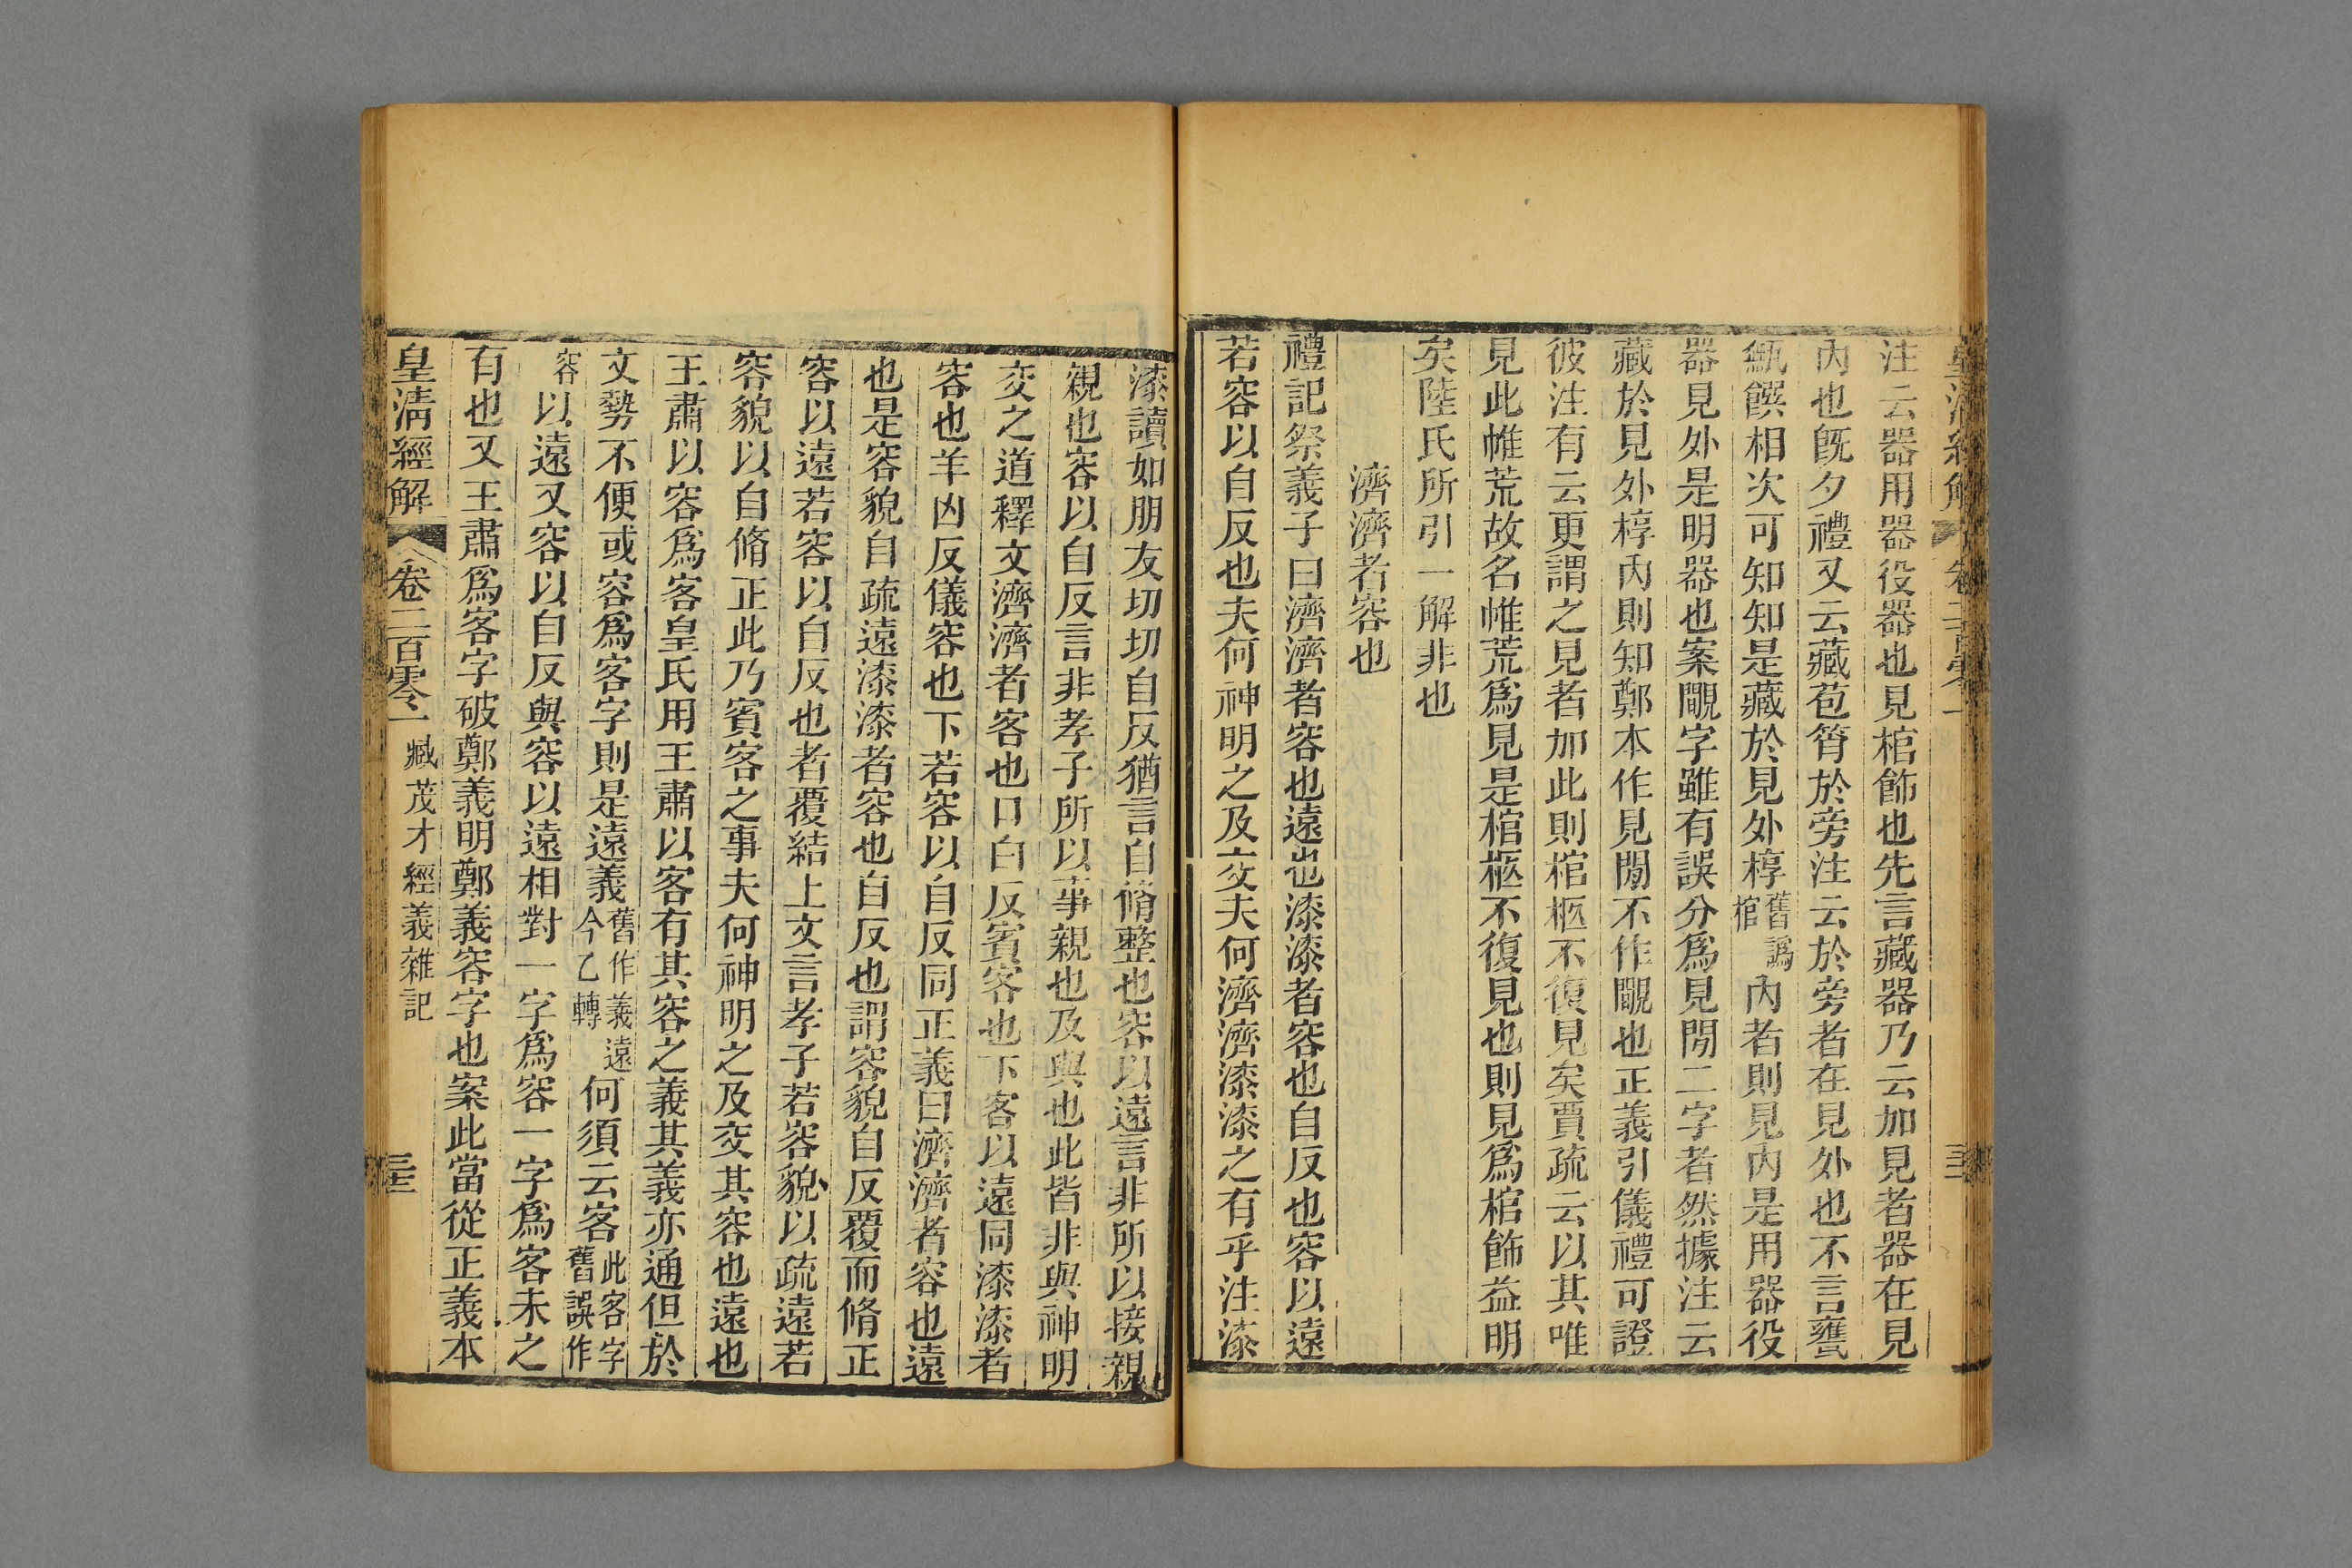 皇清經解 卷二百零一
注云器用器役器也見棺飾也先言藏器乃云加見者器在見
內也旣夕禮又云藏苞筲於旁注云於旁者在見外也不言甕
甒饌相次可知知是藏於見外椁舊譌棺內者則見內是用器役
器見外是明器也案覸字雖有誤分爲見閒二字者然據注云
藏於見外椁內則知鄭本作見閒不作覸也正義引儀禮可證
彼注有云更謂之見者加此則棺柩不復見矣賈疏云以其唯
見此帷荒故名帷荒爲見是棺柩不復見也則見爲棺飾益明
矣陸氏所引一解非也
濟濟者容也
禮記祭義子曰濟濟者容也遠也漆漆者容也自反也容以遠
若容以自反也夫何神明之及交夫何濟濟漆漆之有乎注漆
漆讀如朋友切切自反猶言自脩整也容以遠言非所以接親
親也容以自反言非孝子所以事親也及與也此皆非與神明
交之道釋文濟濟者客也口白反賓客也下客以遠同漆漆者
容也羊凶反儀容也下若容以自反同正義曰濟濟者容也遠
也是容貌自疏遠漆漆者容也自反也謂容貌自反覆而脩正
容以遠若容以自反也者覆結上文言孝子若容貌以疏遠若
容貌以自脩正此乃賓客之事夫何神明之及交其容也遠也
王肅以容爲客皇氏用王肅以客有其容之義其義亦通但於
文勢不便或容爲客字則是遠義舊作義遠今乙轉何須云客此客字舊誤作
容以遠又容以自反與容以遠相對一字爲容一字爲客未之
有也又王肅爲客字破鄭義明鄭義容字也案此當從正義本
皇清經解 卷二百零一 臧茂才經義雜記